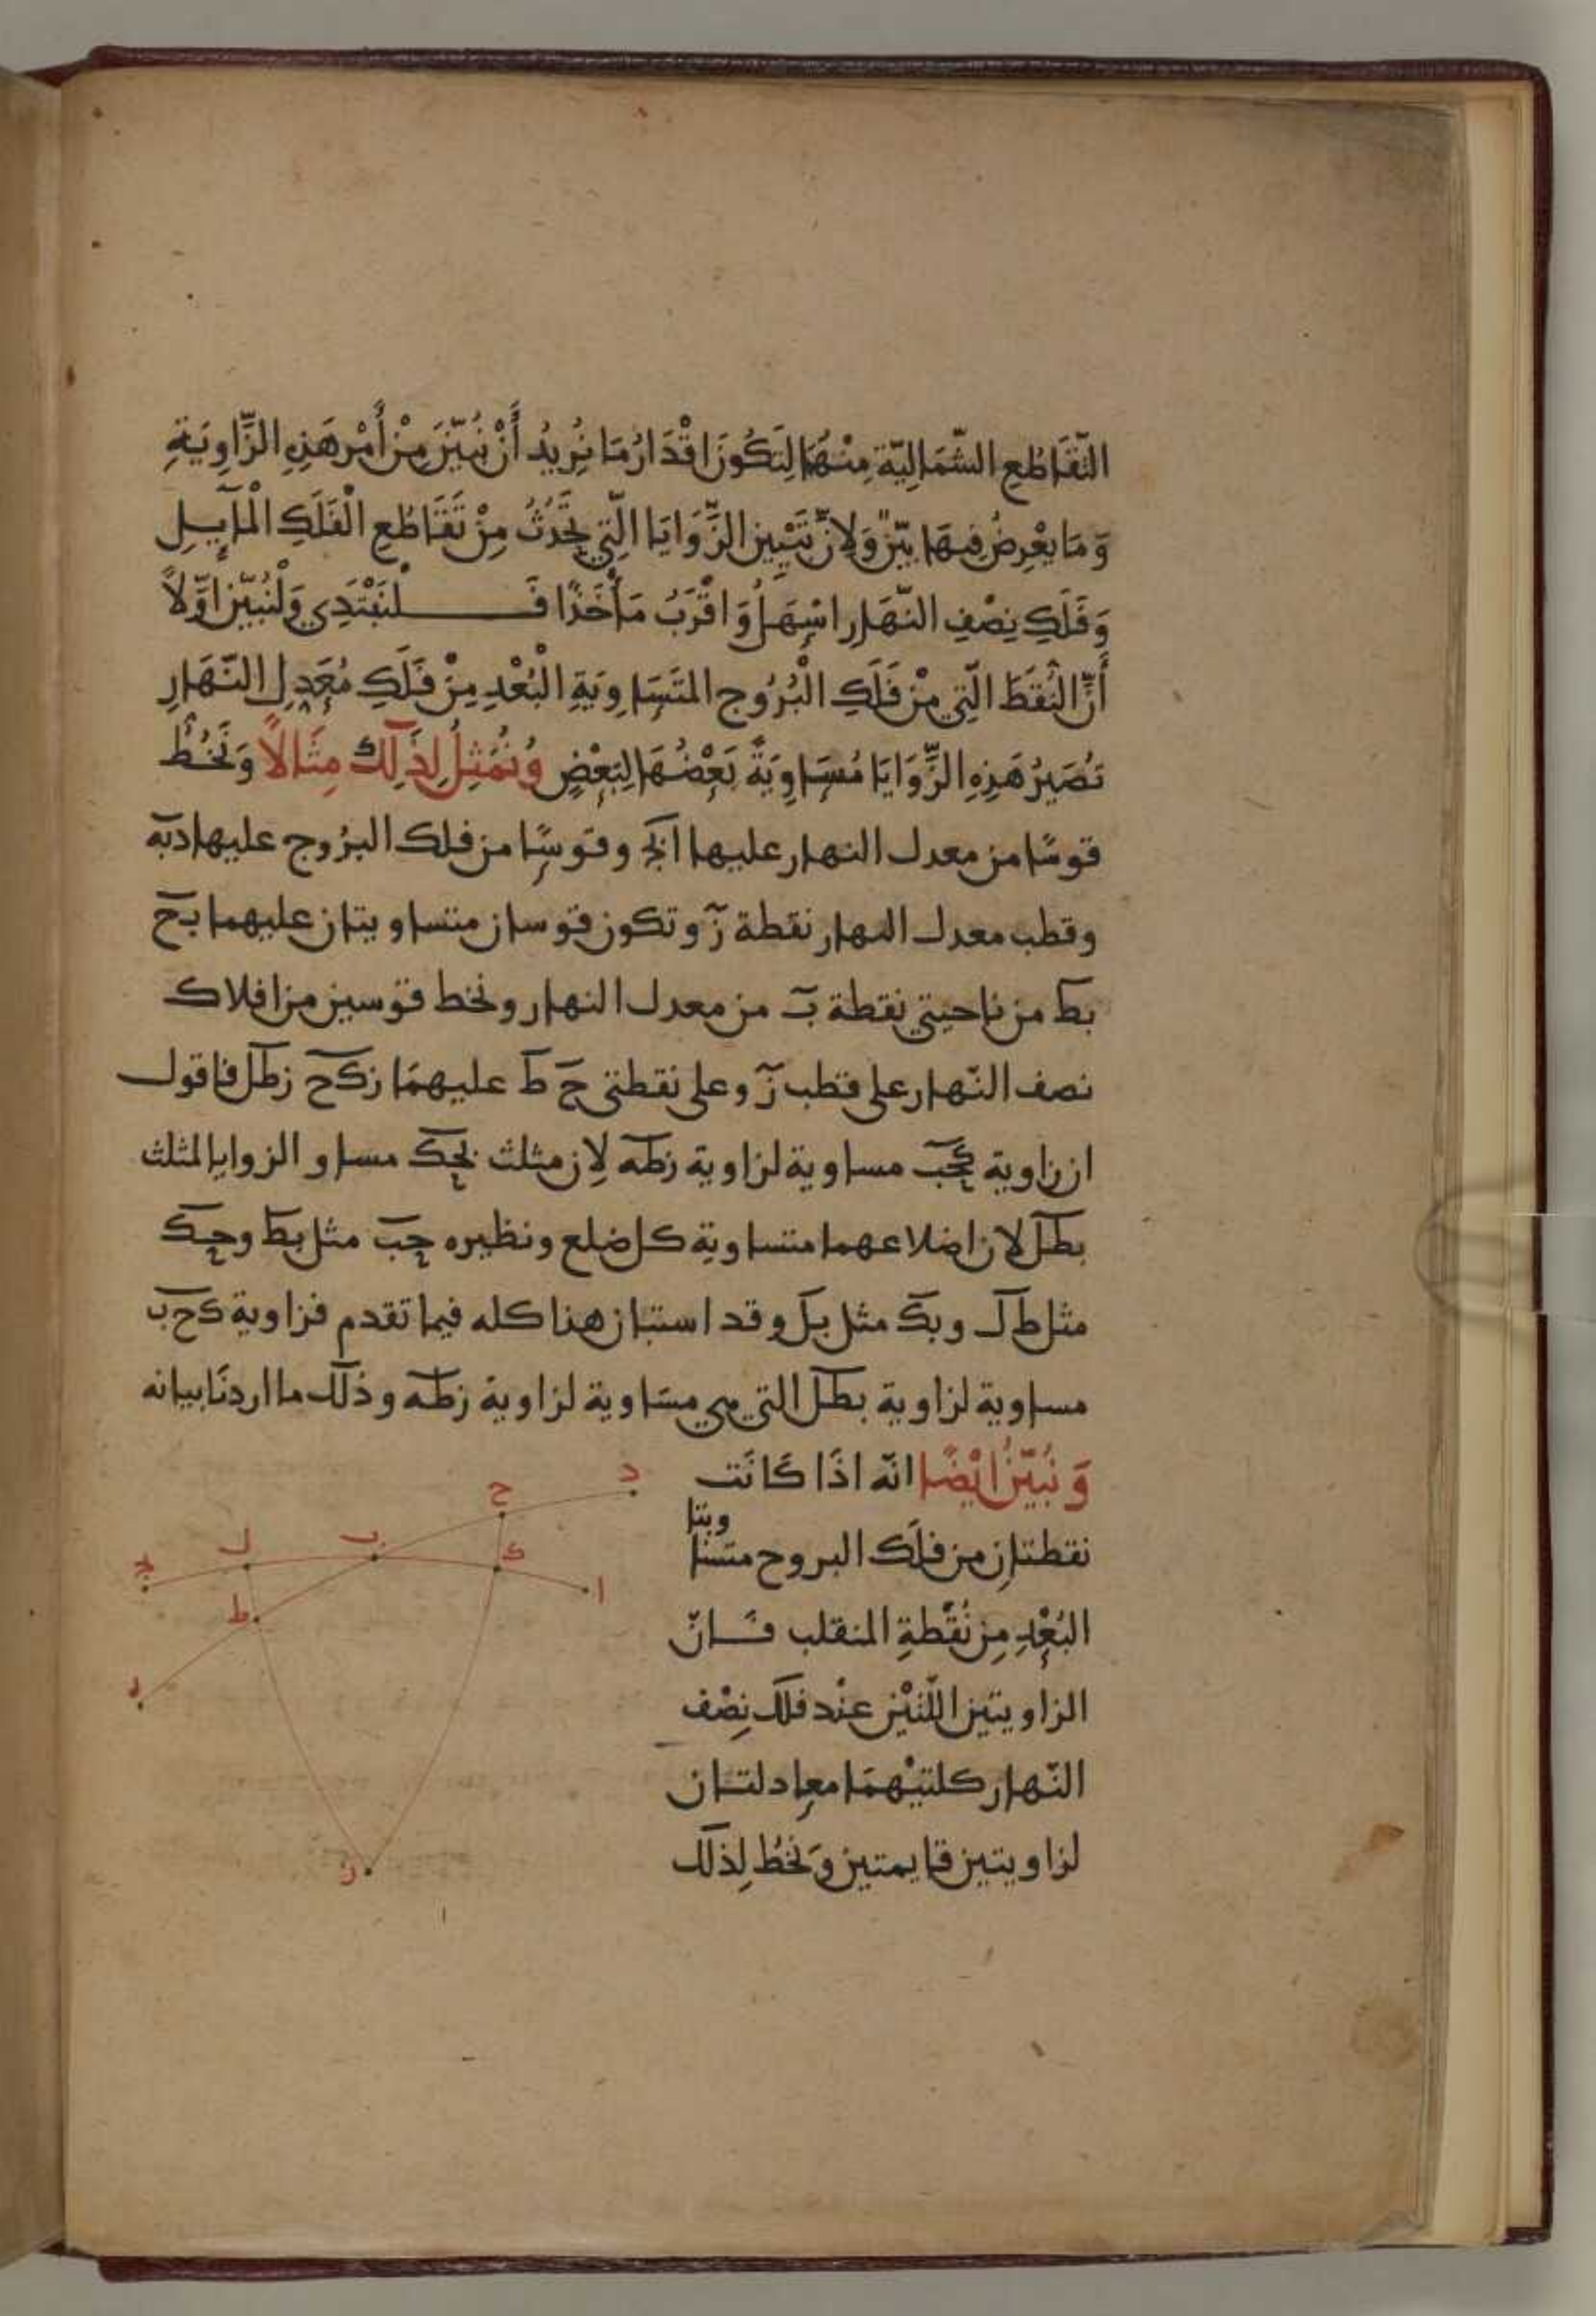 التَّقَاطُعِ الشَّمَالِيَّةِ مِنْهُمَا لِتَكُونَ اقْدَارُ مَا نُرِيدُ أَنْ نُبَيِّنَ مِنْ أَمْرِ هَذِهِ الزَّاوِيَةِ
وَمَا يَعْرِضُ فِيهَا بَيِّنٌ وَلِأَنَّ تَبْيِينَ الزَّوَايَا الَّتِي تَحْدُثُ مِنْ تَقَاطُعِ الْفَلَكِ الْمَآيِلِ
وَفَلَكِ نِصْفِ النَّهَارِ اسْهَلُ وَاقْرَبُ مَأْخَذًا فَلْنَبْتَدِي وَلْنُبَيِّنْ اوَّلاً
أَنَّ النُّقَطَ الَّتِي مِنْ فَلَكِ الْبُرُوجِ المتَسَاوِيَةِ الْبُعْدِ مِنْ فَلَكِ مُعَدِلِ النَّهَارِ
تُصَيِّرُ هَذِهِ الزَّوَايَا مُسَاوِيَةً بَعْضُهَا لِبَعْضٍ وَنُمَثِلُ لِذَلِكَ مِثَالاً وَنَخُطُّ
قوسًا من معدل النهار عليها ابج وقوسًا من فلك البرُوج عليها دبه
وقطب معدل النهار نقطة ز وتكون قوسان متساويتان عليهما بح
بط من ناحيتي نقطة ب من معدل النهار ونخط قوسين من افلاك
نصف النّهار على قطب ز وعلى نقطتي ح ط عليهمَا زكح زطل فاقول
ان زاوية كحب مساوية لزاوية زطه لِان مثلث بحك مساو الزوايا لمثلث
بطل لان اضلاعهما متساوية كل ضلع ونظيره حب مثل بط وحك
مثل طل وبك مثل بل وقد استبان هذا كله فيما تقدم فزاوية كحب
مساوية لزاوية بطل التي هي مسَاوية لزاوية زطه وذلك ما اردنَا بيانه
وَنُبَيِّنُ ايْضًا انّه اذَا كَانَت
نقطتانِ من فلَك البروج متسا
ويتا
البُعْدِ مِن نُقْطَةِ المنقلب فَانّ
الزاويتين اللّتَيْن عنْد فلك نِصْف
النّهار كلتيْهمَا معادلتان
لزاويتين قايمتين وَنَخُطُ لِذلك
د
ح
ك
ب
ل
ا
ج
ط
ه
ز